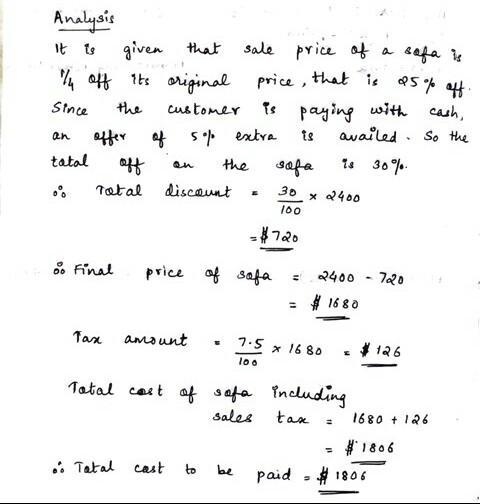 Analysis
It is given that sale price of a sofa is
1/4 off its original price, that is 25% off.
Since the customer is paying with cash,
an offer of 5% extra is availed. So the
total off on the sofa is 30%.
∴ Total discount = 30/100 × 2400
= $720
∴ Final price of sofa = 2400 - 720
= $1680
Tax amount = 7.5/100 × 1680 = $126
Total cost of sofa including
sales tax = 1680 + 126
= $1806
∴ Total cost to be paid = $1806